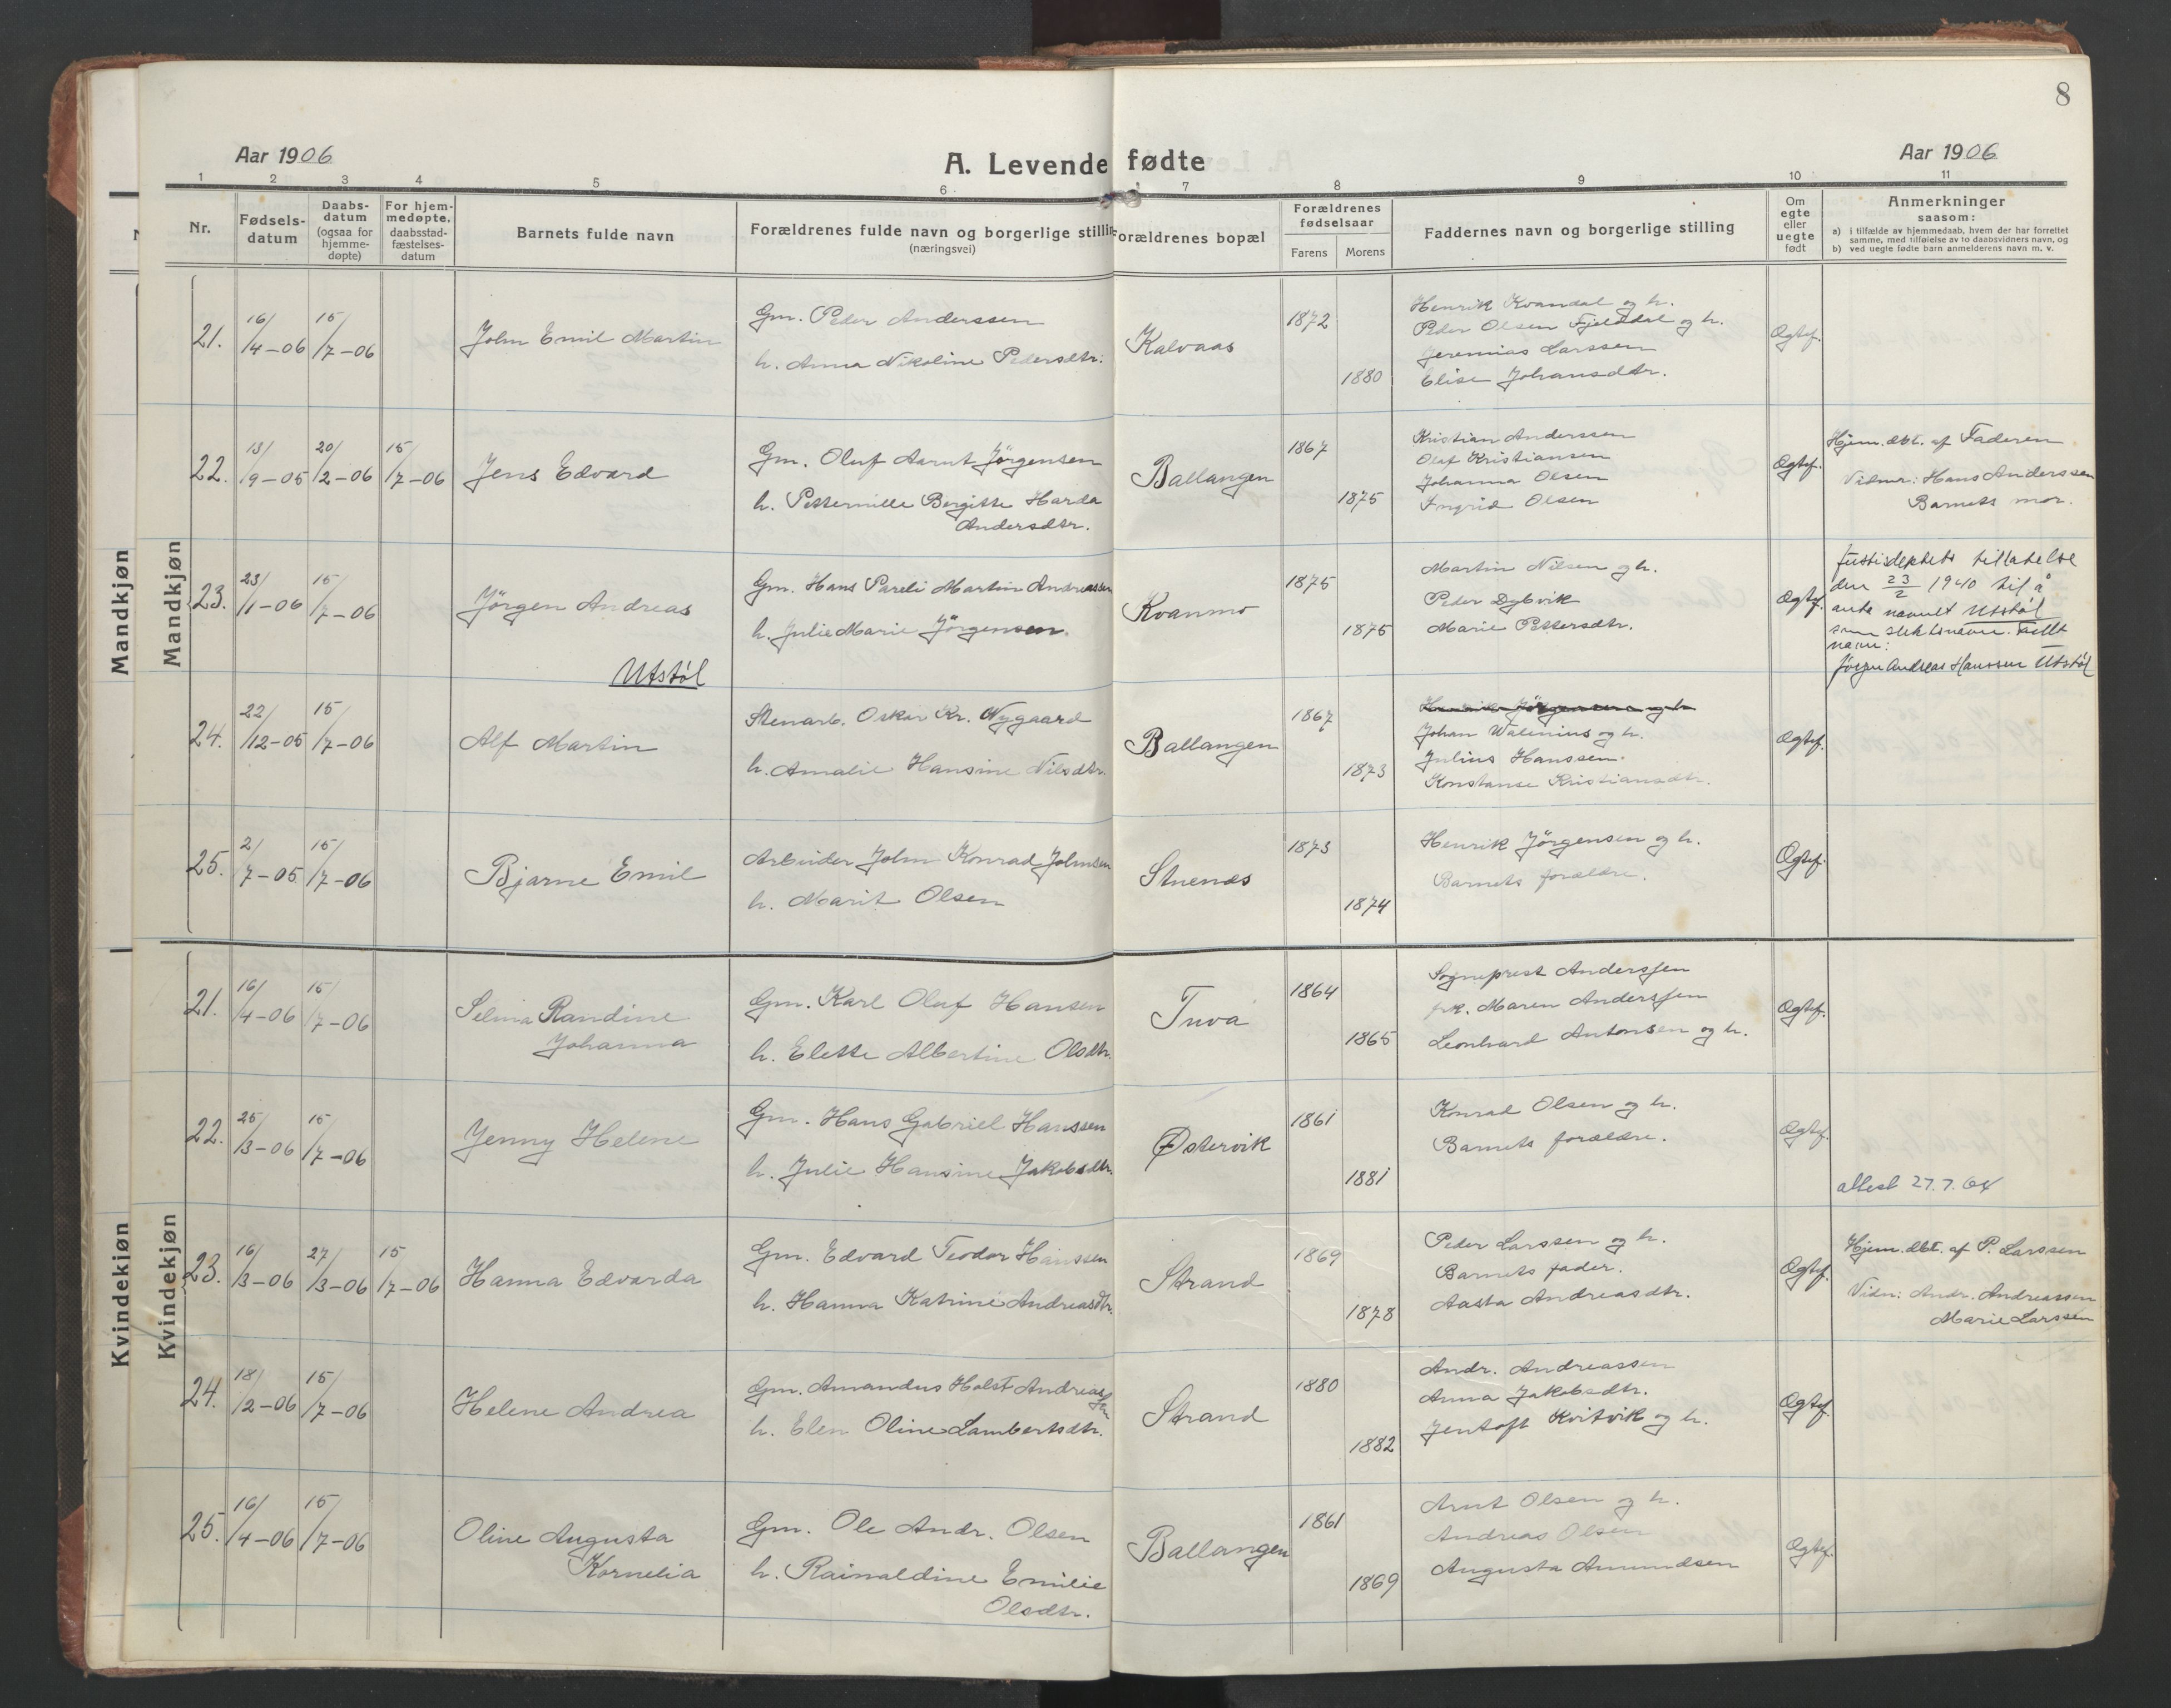 8
Aar 1906
A. Levende fødte
Aar 1906
1 2 3 4 5 6 7 8 9 10 11
Nr.
Fødsels-
datum
Daabs-
datum
(ogsaa for
hjemme-
døpte)
For hjem-
medøpte,
daabsstad-
fæstelses-
datum
Barnets fulde navn
Forældrenes fulde navn og borgerlige stillin
(næringsvei)
Forældrenes bopæl
Forældrenes
fødselsaar
Farens Morens
Faddernes navn og borgerlige stilling
Om
egte
eller
uegte
født
Anmerkninger
saasom:
a) i tilfælde av hjemmedaab, hvem der har forrettet
samme, med tilføielse av to daabsvidners navn, og
b) ved uegte fødte barn anmelderens navn m. v.
Mandkjøn
Mandkjøn
21. 16/4-06 15/7-06
John Emil Martin
Gm. Peder Anderssen
h. Anna Nikoline Pedersdtr.
Kalvaas
1872
1880
Henrik Kvandal og h.
Peder Olsen Fjelddal og h.
Jeremias Larssen
Elise Johansdtr.
Ogtef.
22. 13/9-05 20/2-06 15/7-06
Jens Edvard
Gm. Oluf Aarnt Jörgensen
h. Pettermille Bergitte Harda
Andersdtr.
Ballangen
1867
1875
Kristian Anderssen
Olaf Kristiansen
Johanna Olsen
Ingrid Olsen
Ogtef.
Hjem.dbt. af Faderen
Vidner: Hans Anderssen
Barnets mor.
23. 23/1-06 15/7-06
Jörgen Andreas
Utstøl
Gm. Hans Pareli Martin Andreassen
h. Julie Marie Jörgensen.
Kvanmo
1875
1875
Martin Nilsen og h.
Peder Dybvik
Marie Pettersdtr.
Ogtef.
Justisdeptets tillatelse
den 23/2 1940 til å
anta navnet Utstøl
som slektsnavn. Fullt
navn:
Jørgen Andreas Hanssen Utstøl
24. 22/12-05 15/7-06
Alf Martin
Stenarb. Oskar Kr. Nygaard
h. Amalie Hansine Nilsdtr.
Ballangen
1867
1873
Henrik Jörgensen og h
Johan Walenius og h.
Julius Hanssen.
Konstanse Kristiansdtr.
Ogtef.
25. 2/7-05 15/7-06
Bjarne Emil
Arbeider John Konrad Johnsen
h. Marit Olsen
Stuenes
1873
1874
Henrik Jörgensen og h.
Barnets forældre.
Ogtef.
Kvindekjøn
Kvindekjøn
21. 16/4-06 15/7-06
Selma Randine
Johanna
Gm. Karl Oluf Hansen
h. Elette Albertine Olsdtr.
Tuva
1864
1865
Sogneprest Andersfen
frk. Maren Andersfen
Leonhard Antonsen og h.
Ogtef.
22. 25/3-06 15/7-06
Jenny Helene
Gm. Hans Gabriel Hanssen
h. Julie Hansine Jakobsdtr.
Østervik
1861
1881
Konrad Olsen og h.
Barnets forældre.
Ogtef.
attest 27.7.64
23. 16/3-06 27/3-06 15/7-06
Hanna Edvarda
Gm. Edvard Teodor Hanssen
h. Hanna Katrine Andreasdtr.
Strand
1869
1878
Peder Larssen og h.
Barnets fader.
Aasta Andreasdtr.
Ogtef.
Hjem.dbt. af P. Larssen
Vidn: Andr. Andreassen
Marie Larssen
24. 18/2-06 15/7-06
Helene Andrea
Gm. Amandus Holst Andreassen
h. Elen Oline Lambertsdtr.
Strand
1880
1882
Andr. Andreassen
Anna Jakobsdtr.
Jentoft Kvitvik og h.
Ogtef.
25. 16/4-06 15/7-06
Oline Augusta
Kornelia
Gm. Ole Andr. Olsen
h. Rainaldine Emilie
Olsdtr.
Ballangen
1861
1869
Arnt Olsen og h.
Andreas Olsen
Augusta Amundsen
Ogtef.